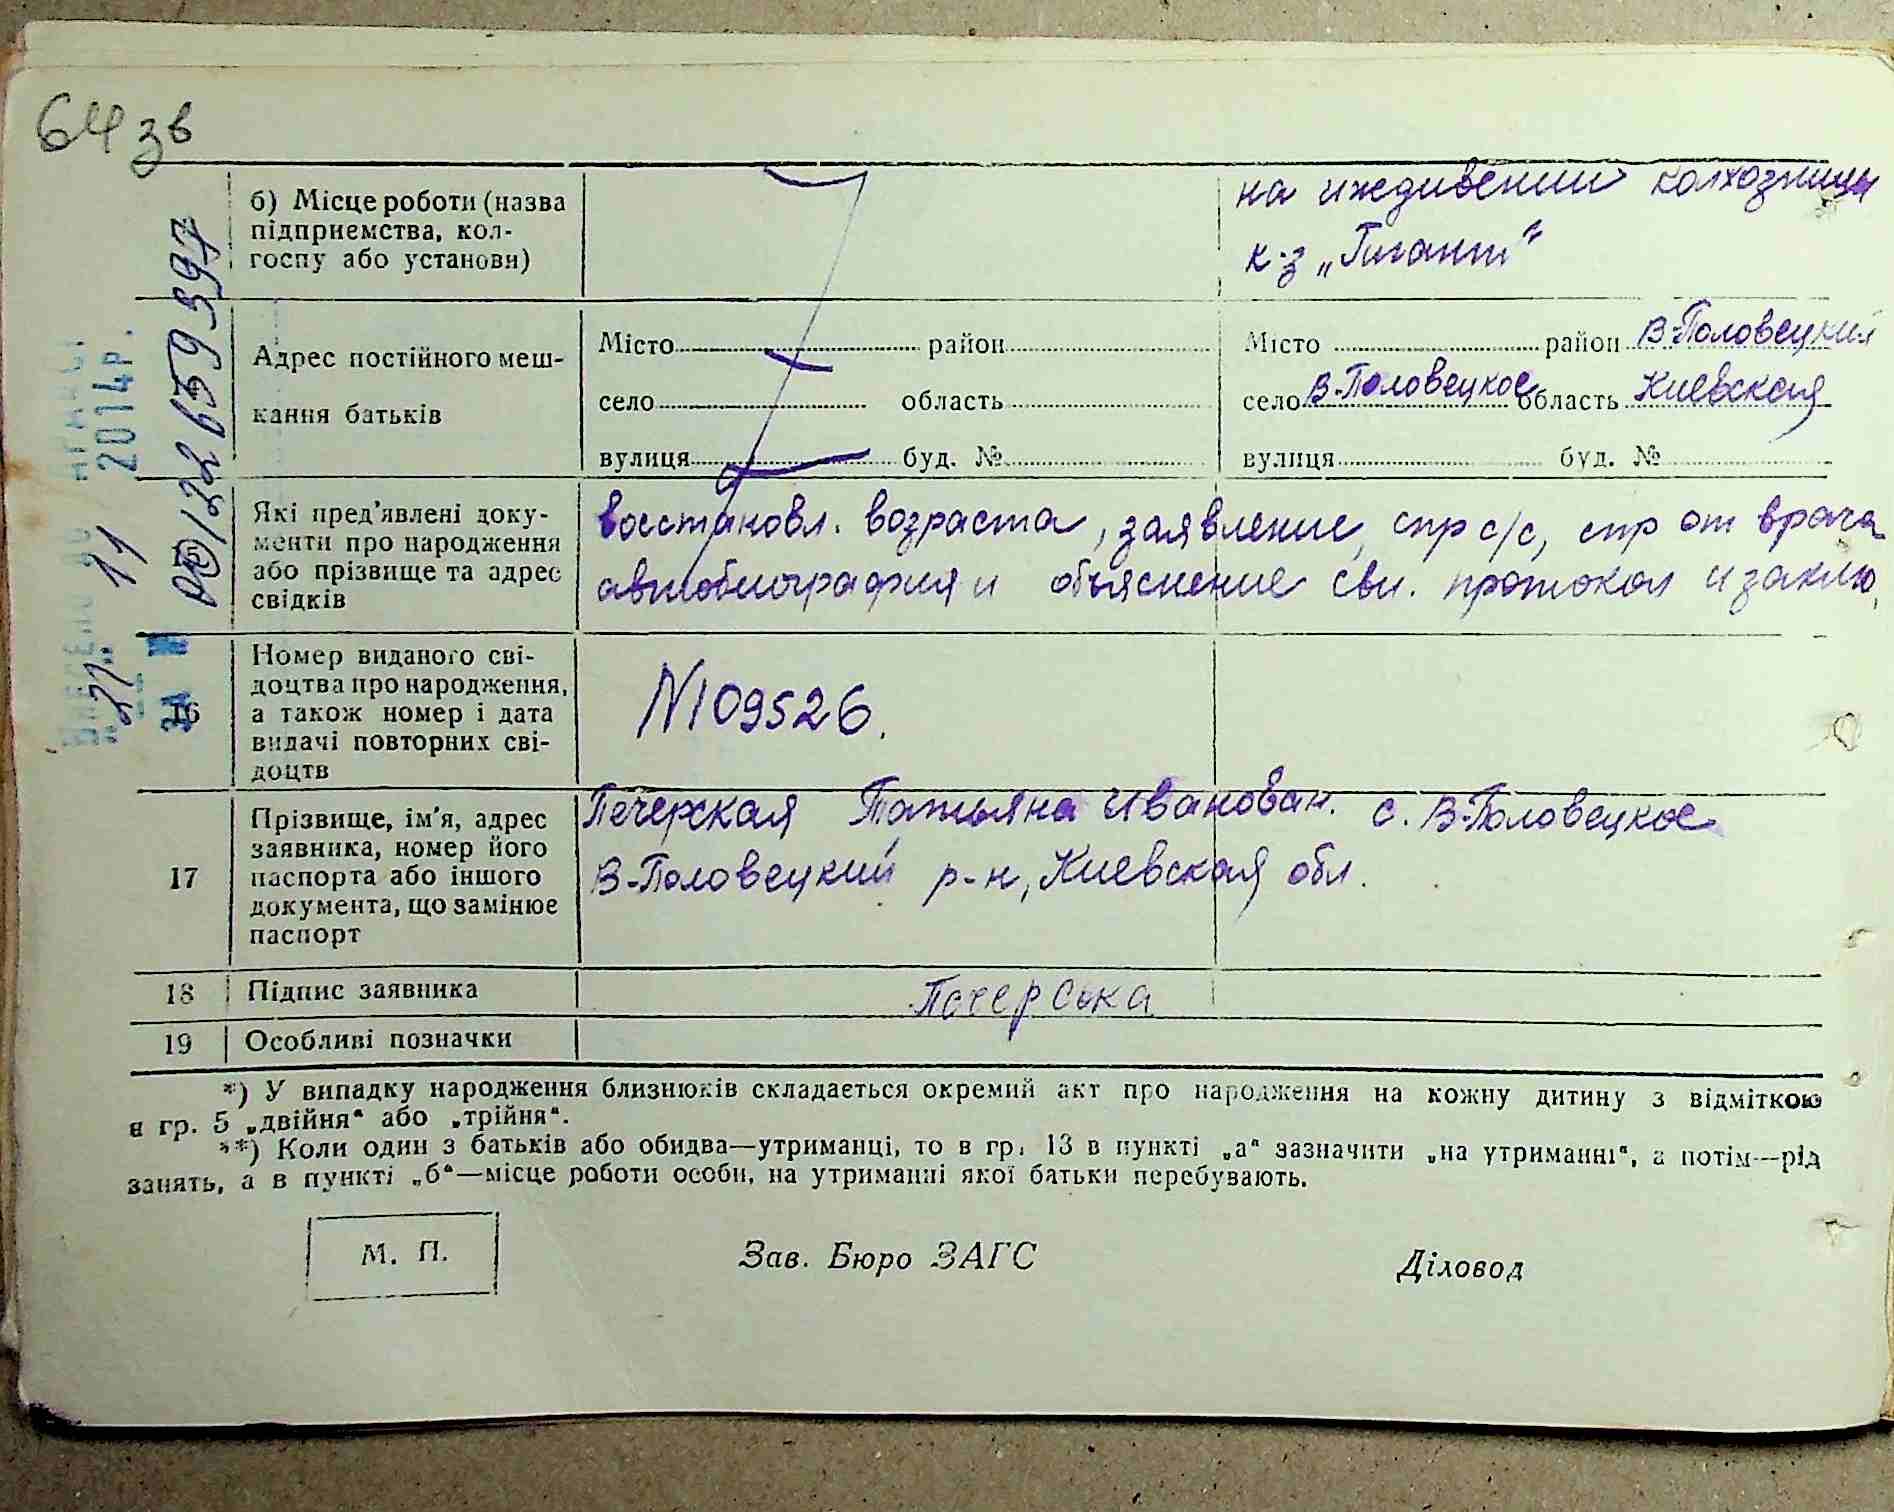 64 зв
б) Місце роботи (назва підприємства, кол-госпу або установи)
на иждивении колхозницы
к-з „Гигант“
Адрес постійного меш-
кання батьків
Місто район
село область
вулиця буд. №
Місто район В-Половецкий
село В-Половецкое область Киевская
вулиця буд. №
Які пред'явлені доку-
менти про народження
або прізвище та адрес
свідків
восстановл. возраста, заявление, спр с/с, спр от врача
автобиография и объяснение сви. протокол и заклю,
16
Номер виданого сві-
доцтва про народження,
а також номер і дата
видачі повторних сві-
доцтв
N109526.
17
Прізвище, ім'я, адрес
заявника, номер його
паспорта або іншого
документа, що замінює
паспорт
Печерская Татьяна Иванован. с. В-Половецкое
В-Половецкий р-н, Киевская обл.
18 Підпис заявника
Печерська
19 Особливі позначки
*) У випадку народження близнюків складається окремий акт про народження на кожну дитину з відміткою
в гр. 5 „двійня“ або „трійня“.
**) Коли один з батьків або обидва—утриманці, то в гр. 13 в пункті „а“ зазначити „на утриманні“, а потім—рід
занять, а в пункті „б“—місце роботи особи, на утриманні якої батьки перебувають.
М. П.
Зав. Бюро ЗАГС
Діловод
2014р.
11
"21"
ЗА №